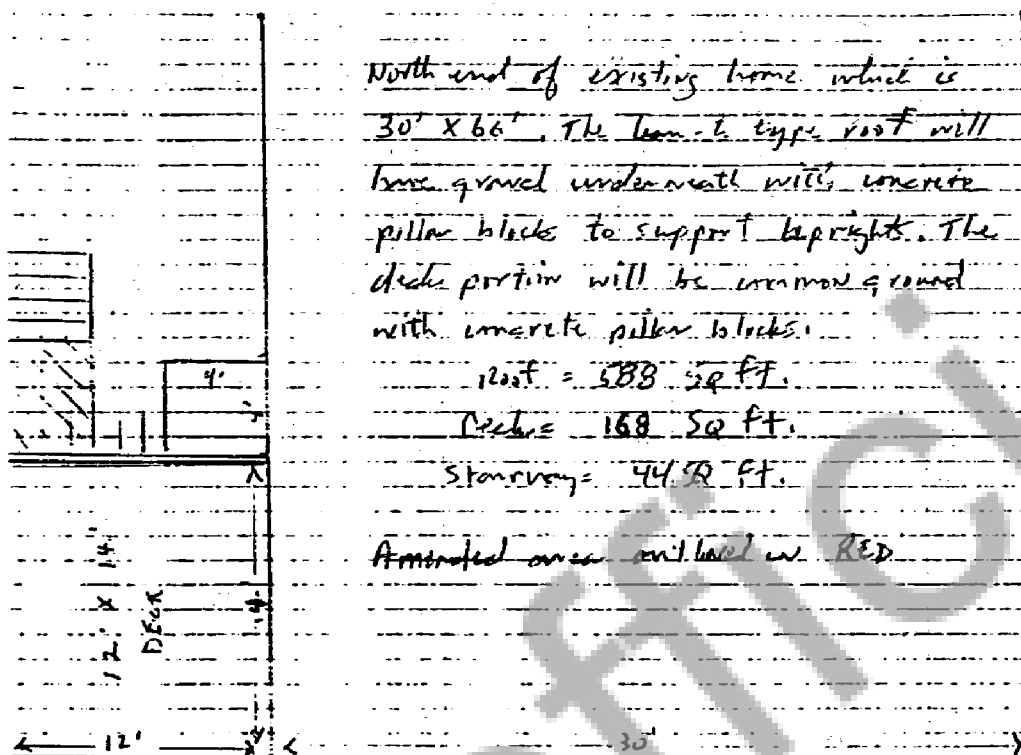 North end of existing home which is
30' X 66'. The lean-to type roof will
have gravel underneath with concrete
pillar blocks to support uprights. The
deck portion will be common ground
with concrete pillar blocks.
Roof = 588 SQ ft.
Deck = 168 SQ ft.
Stairway = 44 SQ ft.
Amended area outlined in RED
4'
4'
12' X 14'
DECK
14'
12'
30'
ffici